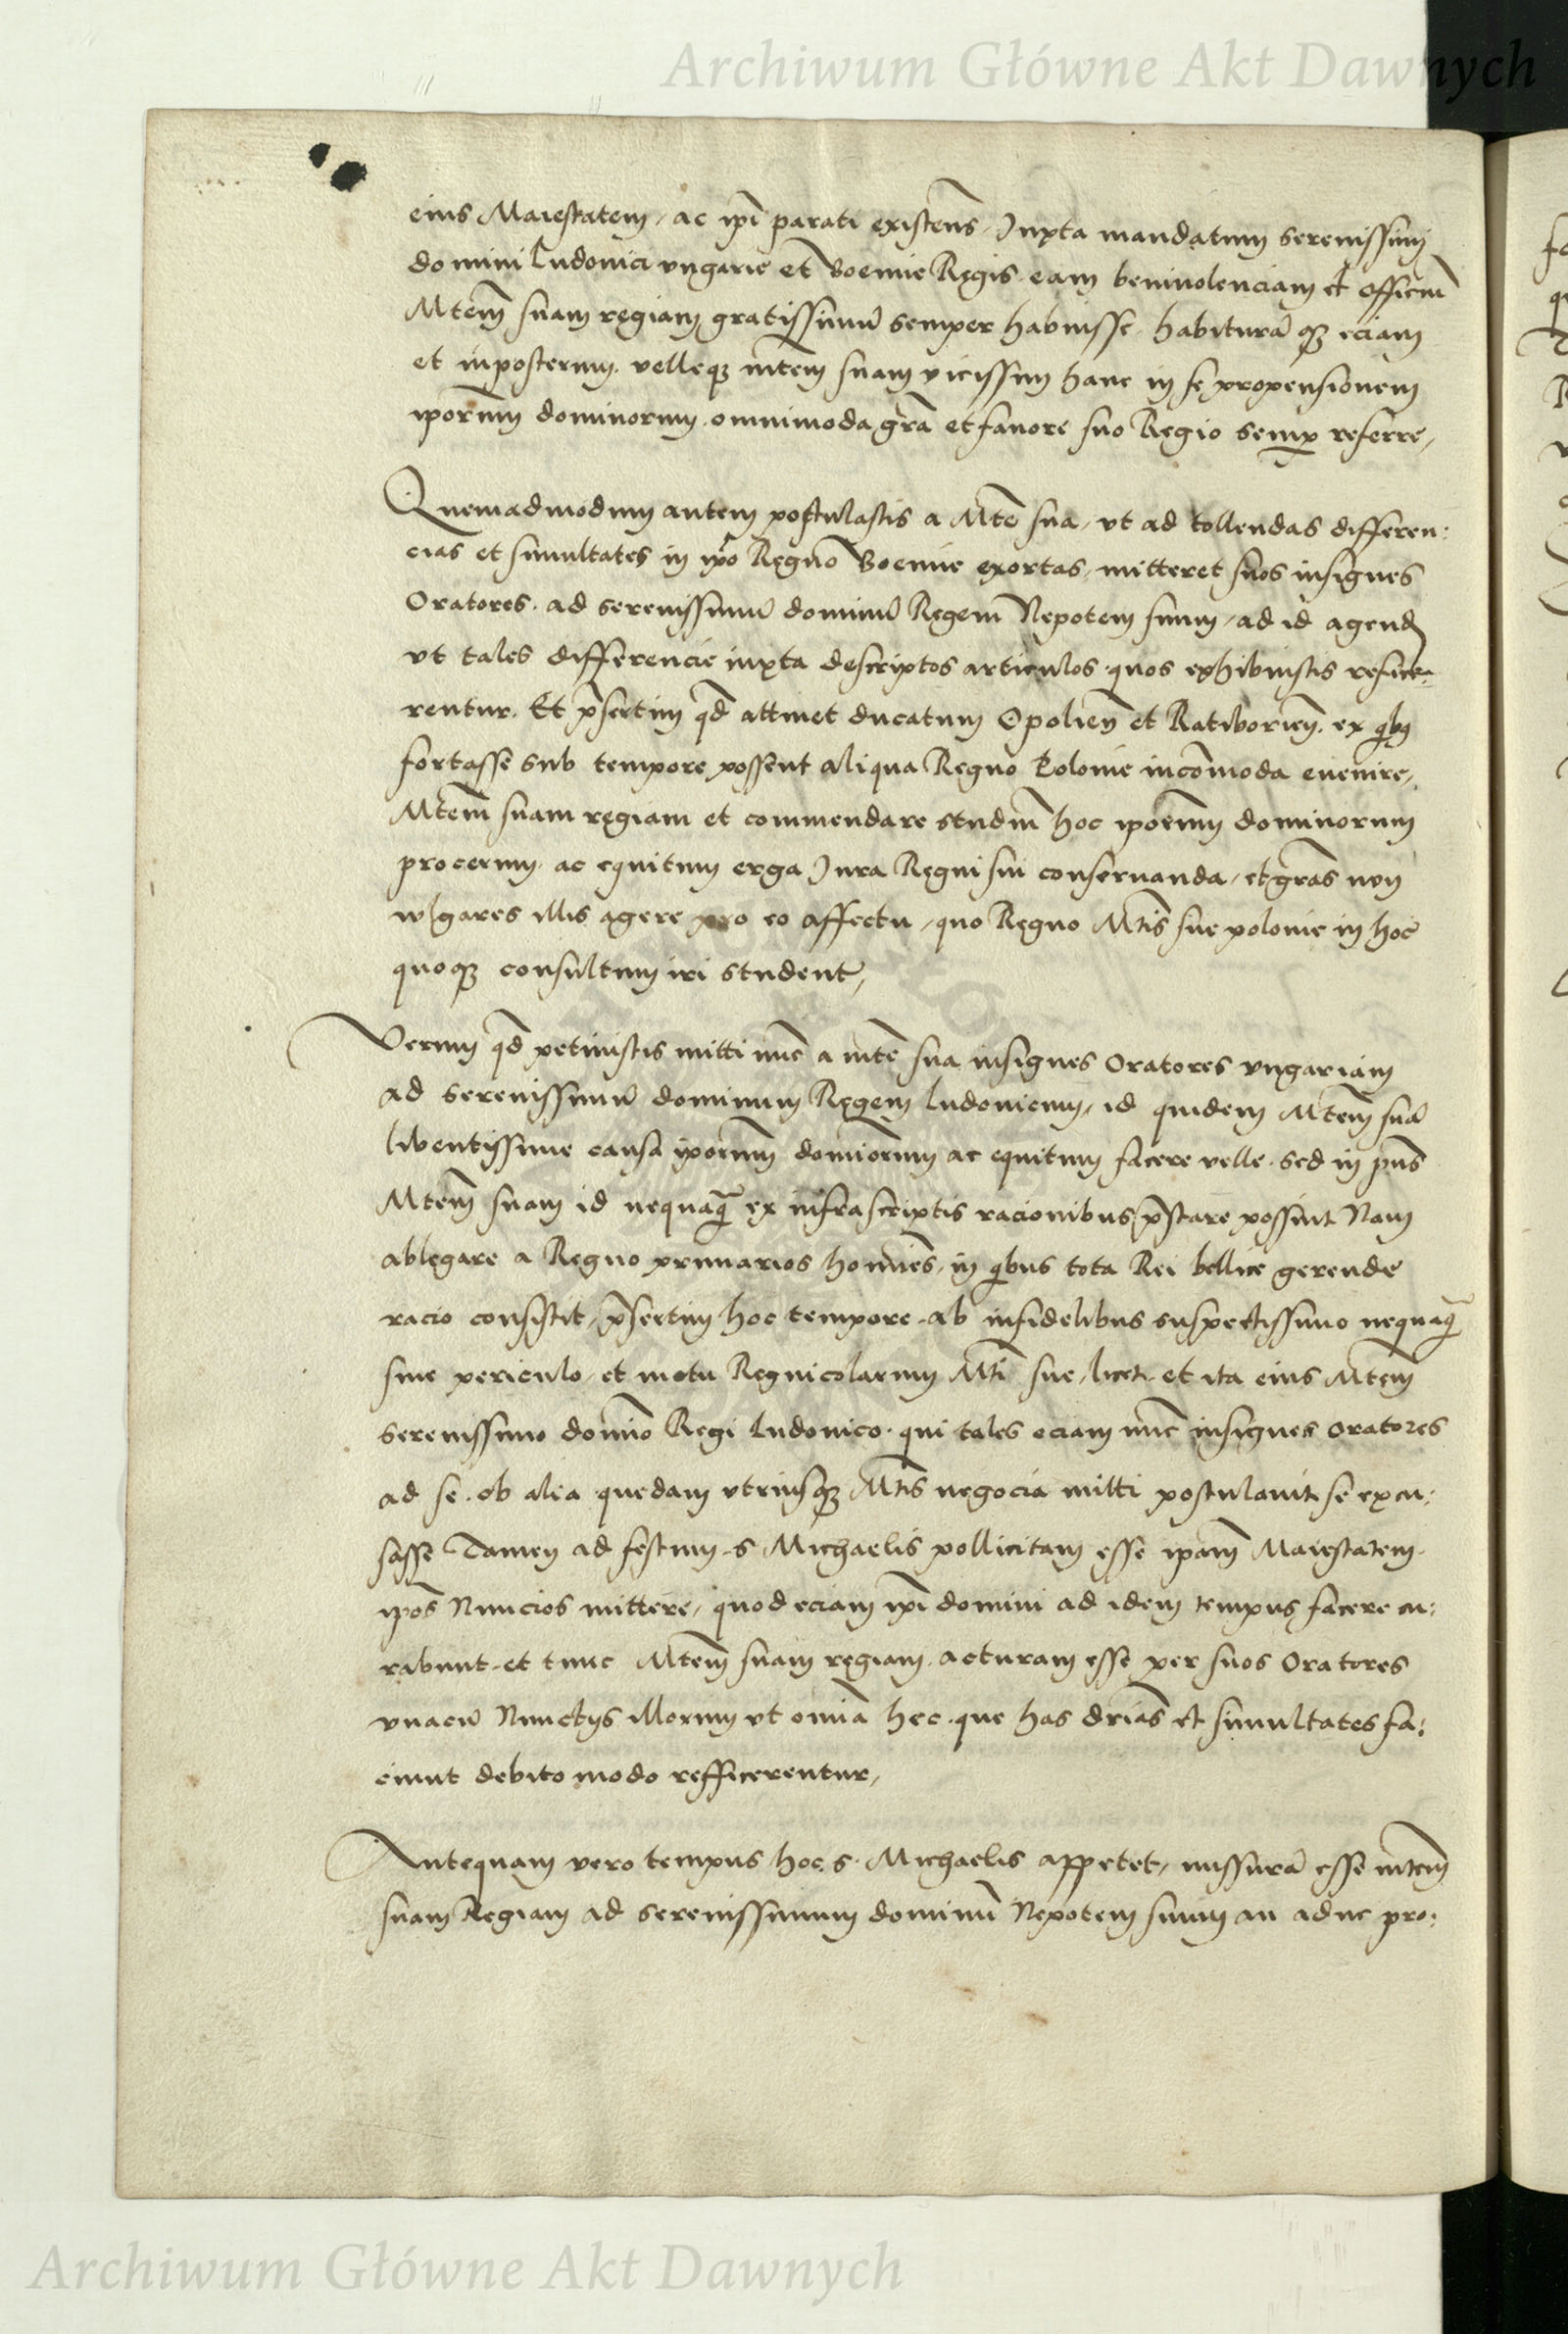 Archiwum Główne Akt Dawnych
eius Maiestatem, ac ip̄i parati existen̄s, Iuxta mandatum serenissimi
domini Ludouici vngarie et Boemie Regis, eam beniuolenciam et officiū
Mtem̄ suam regiam gratissimū semper habuisse, habiturā qȝ eciam
et inposterum, velleqȝ mtem̄ suam vicissim hanc in se propensionem
ipōrum dominorum, omnimoda gr̄a et fauore suo Regio semp̱ referre,
Quemadmodum autem postulastis a Mtē sua, vt ad tollendas differen:
cias et simultates in ip̄o Regno Boemie exortas, mitteret suos insignes
Oratores, ad serenissimū dominū Regem Nepotem suum, ad id agend
vt tales differencie iuxta descriptos articulos quos exhibuistis refice:
rentur. Et p̄sertim qd̄ attinet ducatum Opolien̄ et Ratiborien̄, ex qibꝫ
fortasse sub tempore possent aliqua Regno Polonie incom̄oda euenire,
Mtem̄ suam regiam et commendare studiū hoc ipōrum dominorum
procerum, ac equitum erga Iura Regni sui conseruanda, et gr̄as non
wlgares illis agere pro eo affectu, quo Regno Mtis̄ sue polonie in hoc
quoqȝ consultum iri student,
Verum qd̄ petiuistis mitti nūc a mtē sua insignes Oratores vngariam
ad serenissimū dominum Regem ludouicum, id quidem Mtem̄ suā
libentissime causa ipōrum domiōrum ac equitum facere velle, sed in pn̄s
Mtem̄ suam id nequaq̄ ex infrascriptis racionibus p̄stare possint Nam
ablegare a Regno primarios homiēs, in qibus tota Rei bellice gerende
racio consistit, p̄sertim hoc tempore, ab infidelibus suspectissimo nequaq̄
sine periculo, et motu Regnicolarum Mtī sue, licet, et ita eius Mtem̄
serenissimo domīo Regi ludouico, qui tales eciam nūc insignes oratores
ad se, ob alia quedam vtriusqȝ Mtis̄ negocia mitti postulauit se excu:
sasse Tamen ad festum S Michaelis pollicitam esse ipam̄ Maiestatem
ipōs Nuncios mittere, quod eciam ip̄i domini ad idem tempus facere cu:
rabunt, et tunc Mtem̄ suam regiam, acturam esse per suos Oratores
vnacū Nuncijs illorum vt omīa hec, que has dr̄ias et simultates fa:
ciunt debito modo refficerentur,
Antequam vero tempus hoc S. Michaelis appetet, missurā esse mtem̄
suam Regiam ad serenissimum dominū Nepotem suum an adhuc pro:
Archiwum Główne Akt Dawnych